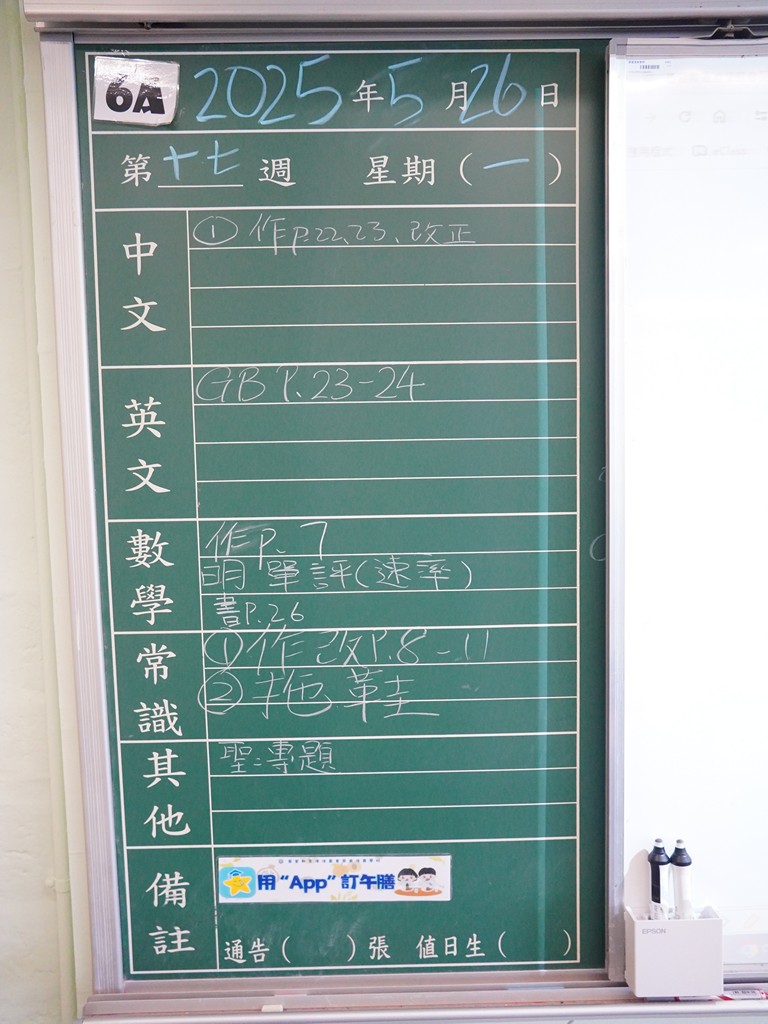 6A 2025年5月26日
第十七週 星期(一)
中文
① 作p.22、23、改正
英文
GB P.23-24
數學
作p. 7
明 單評(速率)
書P.26
常識
①作改P.8-11
②拖鞋
其他
聖:專題
備註
用“App”訂午膳
通告( )張 值日生( )
EPSON